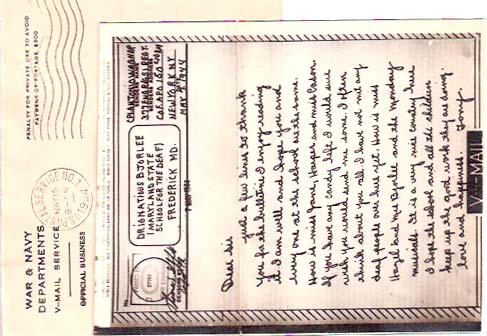 WAR & NAVY
DEPARTMENTS
V-MAIL SERVICE
OFFICIAL BUSINESS
PENALTY FOR PRIVATE USE TO AVOID
PAYMENT OF POSTAGE, $300
No.
DR IGNATIUS BJORLEE
(MARYLAND STATE
SCHOOL FOR THE DEAF)
FREDERICK MD.
NEW YORK NY
MAY 4, 1944
Dear Sir
just a few lines to thank
you for the bulletine I enjoy reading
it I am well and hope you and
every one at the school are the same.
How is miss Kane, Harper and miss Eaton
If you have any candy left I would sure
wish you would send me some. I often
think about you all I have not met any
deaf people over here yet. How is miss
Hazel and Mrs Bjorlee and the monday
musicals. It is a very nice country here
I hope the school and all the children
keep up the good work they are doing.
love and happiness. Tony.
V-MAIL